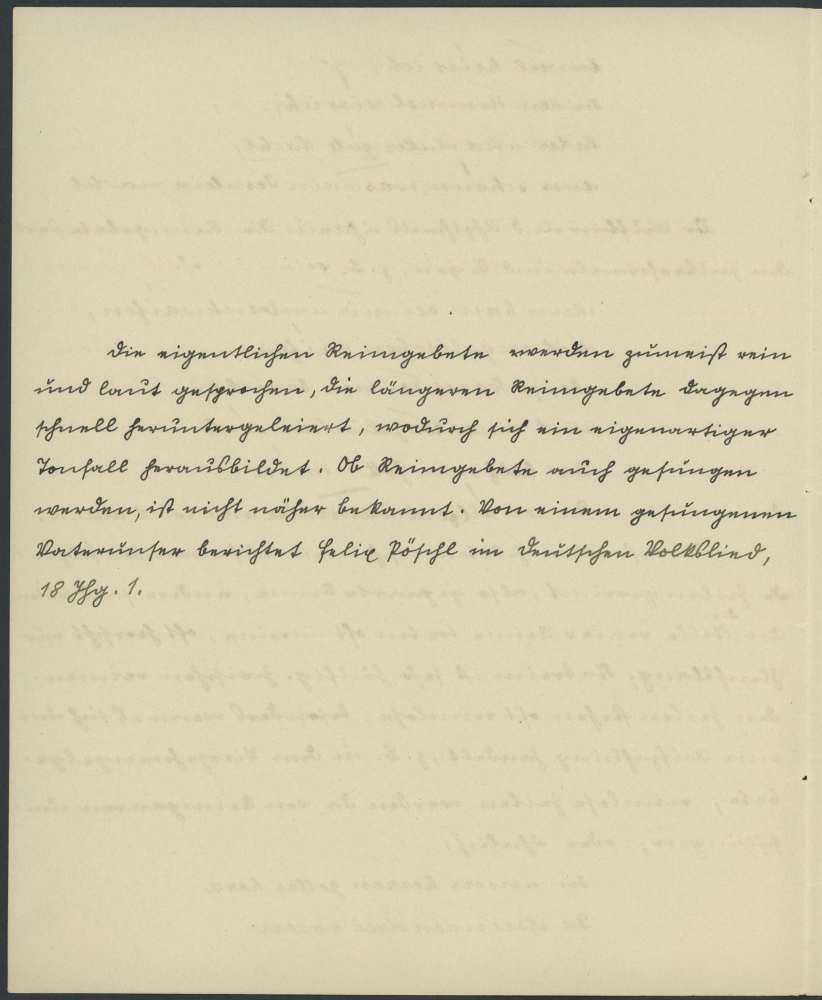 Die eigentlichen Reimgebete werden zumeist rein
und laut gesprochen, die längeren Reimgebete dagegen
schnell heruntergeleiert, wodurch sich ein eigenartiger
Tonfall herausbildet. Ob Reimgebete auch gesungen
werden, ist nicht näher bekannt. Von einem gesungenen
Vaterunser berichtet Felix Pöschl im Deutschen Volkslied,
18 Jhg. 1.